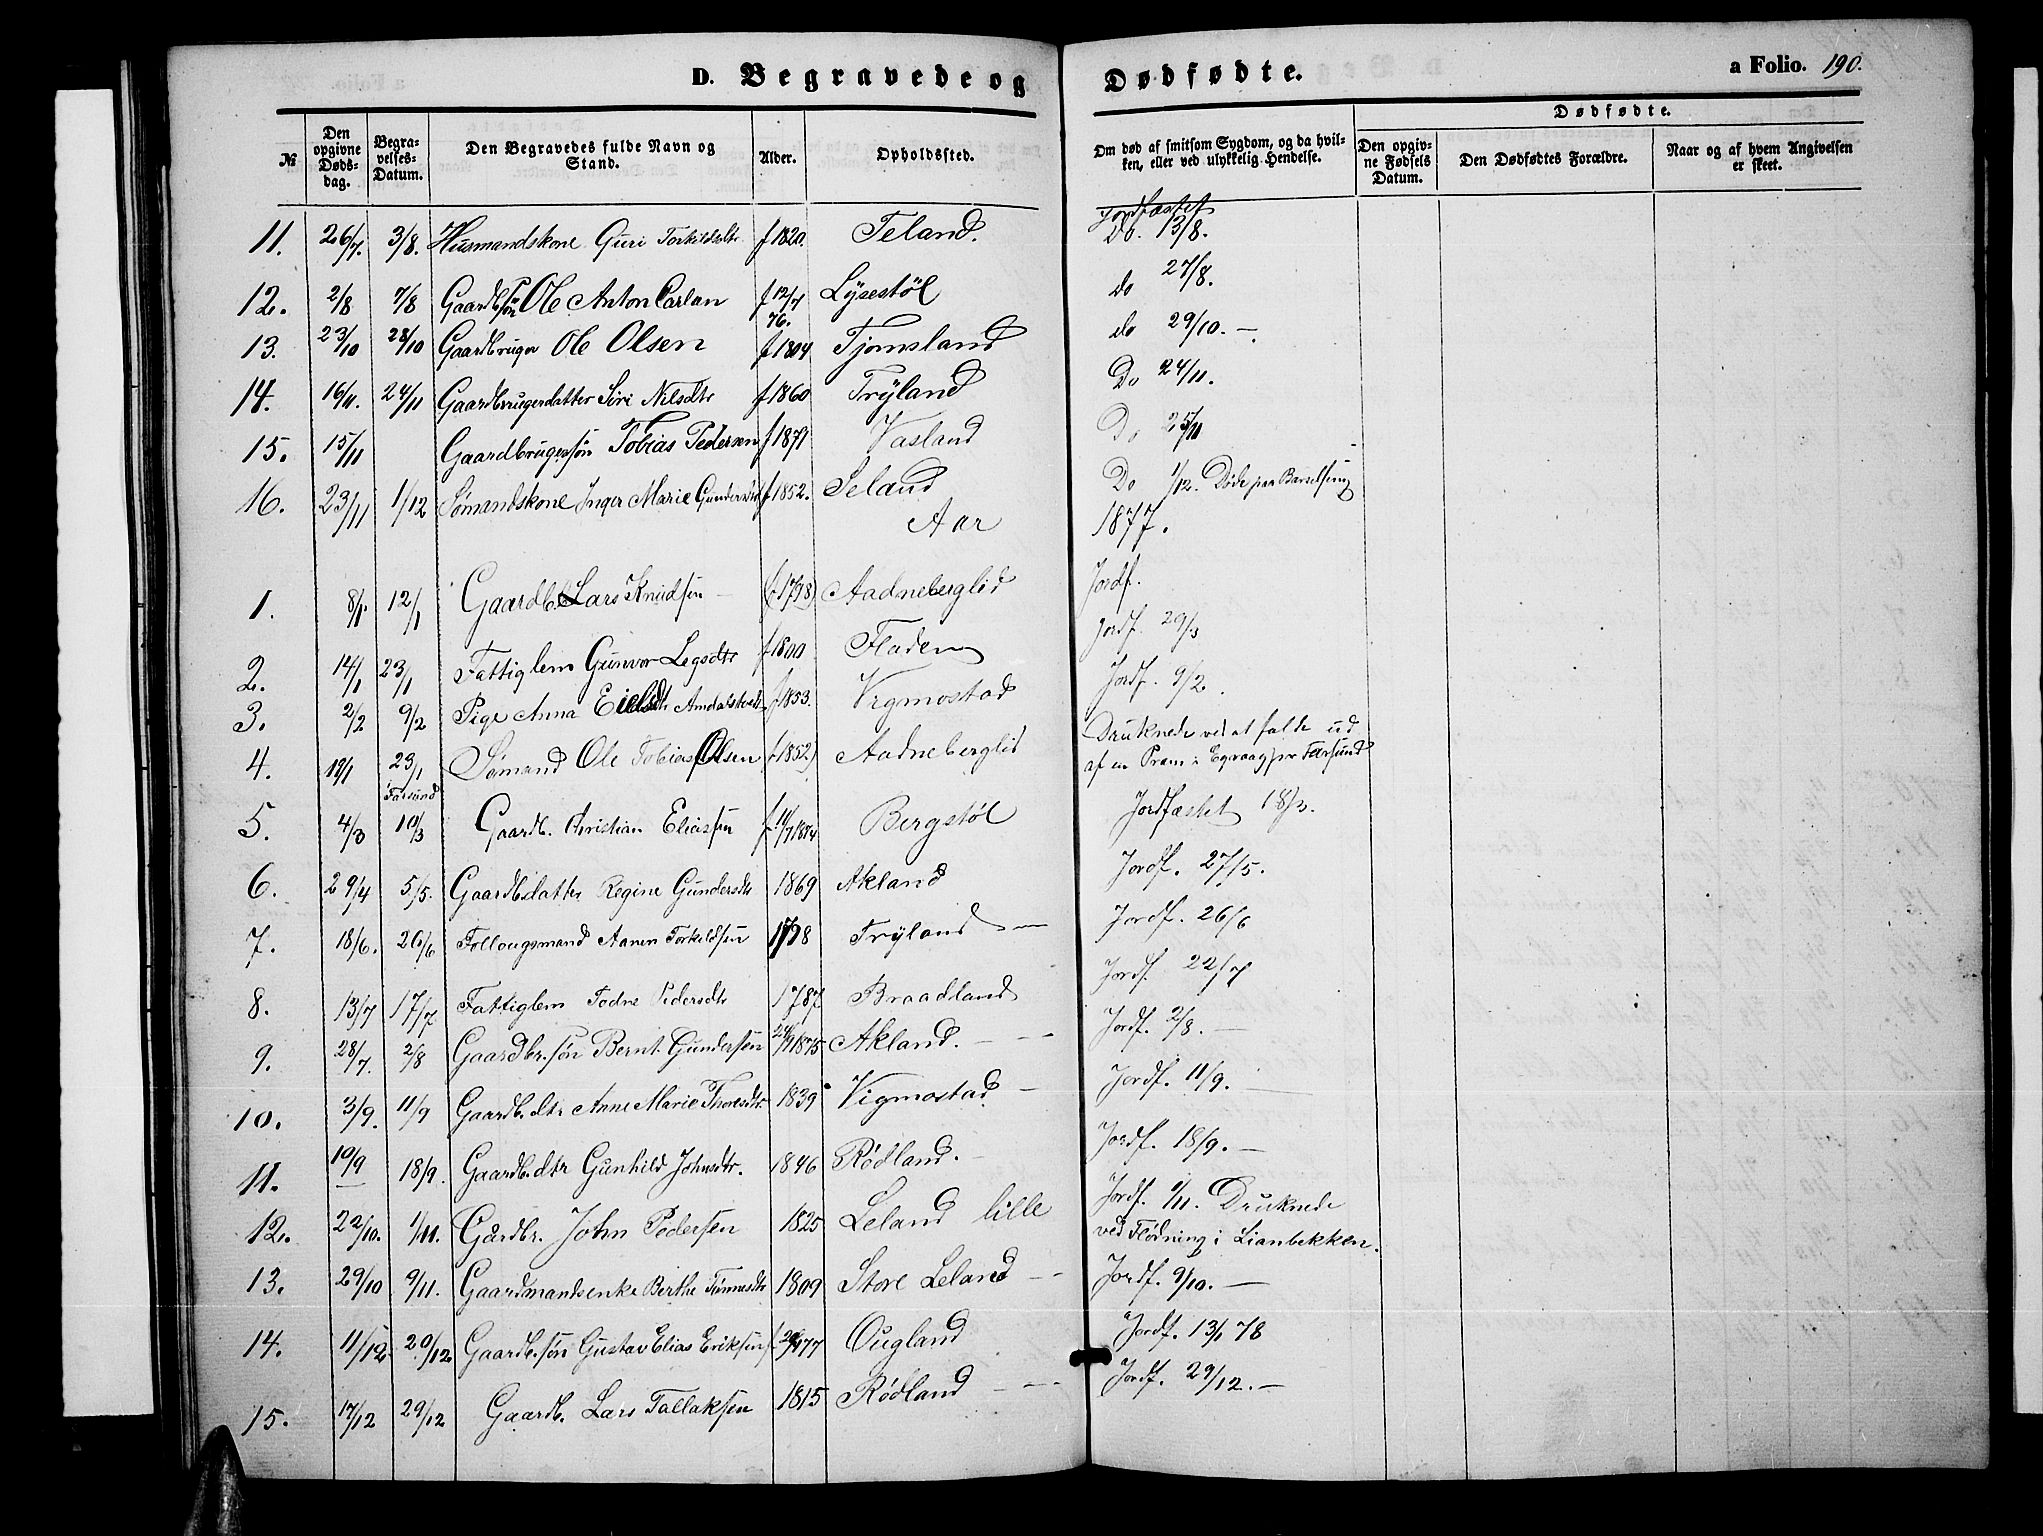 D. Begravede og Dødfødte. a Folio. 190.
Dødfødte.
№ Den opgivne Døds-dag. Begra-velses-Datum. Den Begravedes fulde Navn og Stand. Alder. Opholdssted. Om død af smitsom Sygdom, og da hvil-ken, eller ved ulykkelig Hendelse. Den opgiv-ne Fødsels Datum. Den Dødfødtes Forældre. Naar og af hvem Angivelsen er skeet.
Jordfæstet
11. 26/7. 3/8. Husmandskone Guri Torkildsdtr f 1820. Teland. Do. 13/8.
12. 2/8 7/8 Gaardbr. søn Ole Anton Carlan f 12/7 76. Lysestøl do 27/8.
13. 23/10 28/10 Gaardbruger Ole Olsen f 1804 Tjomsland do 29/10. —
14. 16/11. 24/11 Gaardbrugerdatter Siri Nilsdtr f 1860 Tryland Do 24/11.
15. 15/11 Gaardbrugersøn Tobias Pedersen f 1871 Vasland Do 25/11
16. 23/11 1/12 Sømandskone Inger Marie Gundersdtr f 1852. Seland Do 1/12. Døde paa Barselseng
Aar 1877.
1. 8/1 12/1 Gaardb. Lars Knudsen (f 1798) Aadneberglid Jordf.
2. 14/1 23/1 Fattiglem Gunvor Legsdtr f 1800 Fladen Jordf. 29/3
3. 2/2 9/2 Pige Anna f 1853. Vigmostad Jordf. 9/2.
4. 19/1 23/1 Farsund Sømand Ole Tobias Olsen (f 1852) Aadneberglid Druknede ved at falde ud
af en Pram i per Farsund
5. 4/3 10/3 Gaardb. Christian Eliassen Bergstøl Jordfæstet 18/3.
6. 29/4 5/5. Gaardb.datter Regine Gundersdtr 1869 Akland Jordf. 27/5.
7. 18/6. 26/6 Follougsmand Aanen Torkildsen 1798 Tryland — Jordf. 26/6
8. 13/7 17/7 Fattiglem Todne Pedersdtr 1787 Braadland Jordf. 22/7
9. 28/7. 2/8 Gaardbr. søn Bernt Gundersen 1875 Akland. — Jordf. 2/8. —
10. 3/9. 11/9 Gaardb. dtr Anne Marie Thoresdtr 1839 Vigmostad — Jordf. 11/9. —
11. 10/9 18/9. Gaardb. dtr Gunhild Johnsdtr. 1846 Rødland. — Jordf. 18/9. —
12. 22/10. 1/11. Gårdbr. John Pedersen 1825 Leland lille Jordf. 1/11. Druknede
ved Flødning i Lianbekken.
13. 29/10 9/11. Gaardmandsenke Berthe Tønnesdtr 1809 Store Leland — Jordf. 9/10. —
14. 11/12 20/12 Gaardb. søn Gustav Elias Eriksen Ougland Jordf. 13/1 78
15. 17/12 29/12 Gaardb. Lars Tallaksen 1815 Rødland — Jordf. 29/12. —